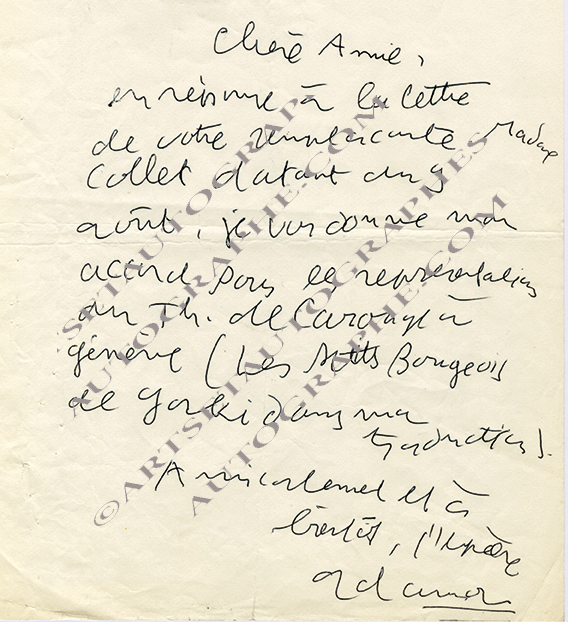 Chère Annie,
en réponse à la lettre
de votre remplaçante Madame
Collet datant du 9
août, je vous donne mon
accord pour les représentations
du Th. de Carouge à
Genève (Les Petits Bourgeois
de Gorki dans ma
traduction).
Amicalement et à
bientôt, j'espère
adamov
©ARTSETAUTOGRAPHES
AUTOGRAPHE.COM